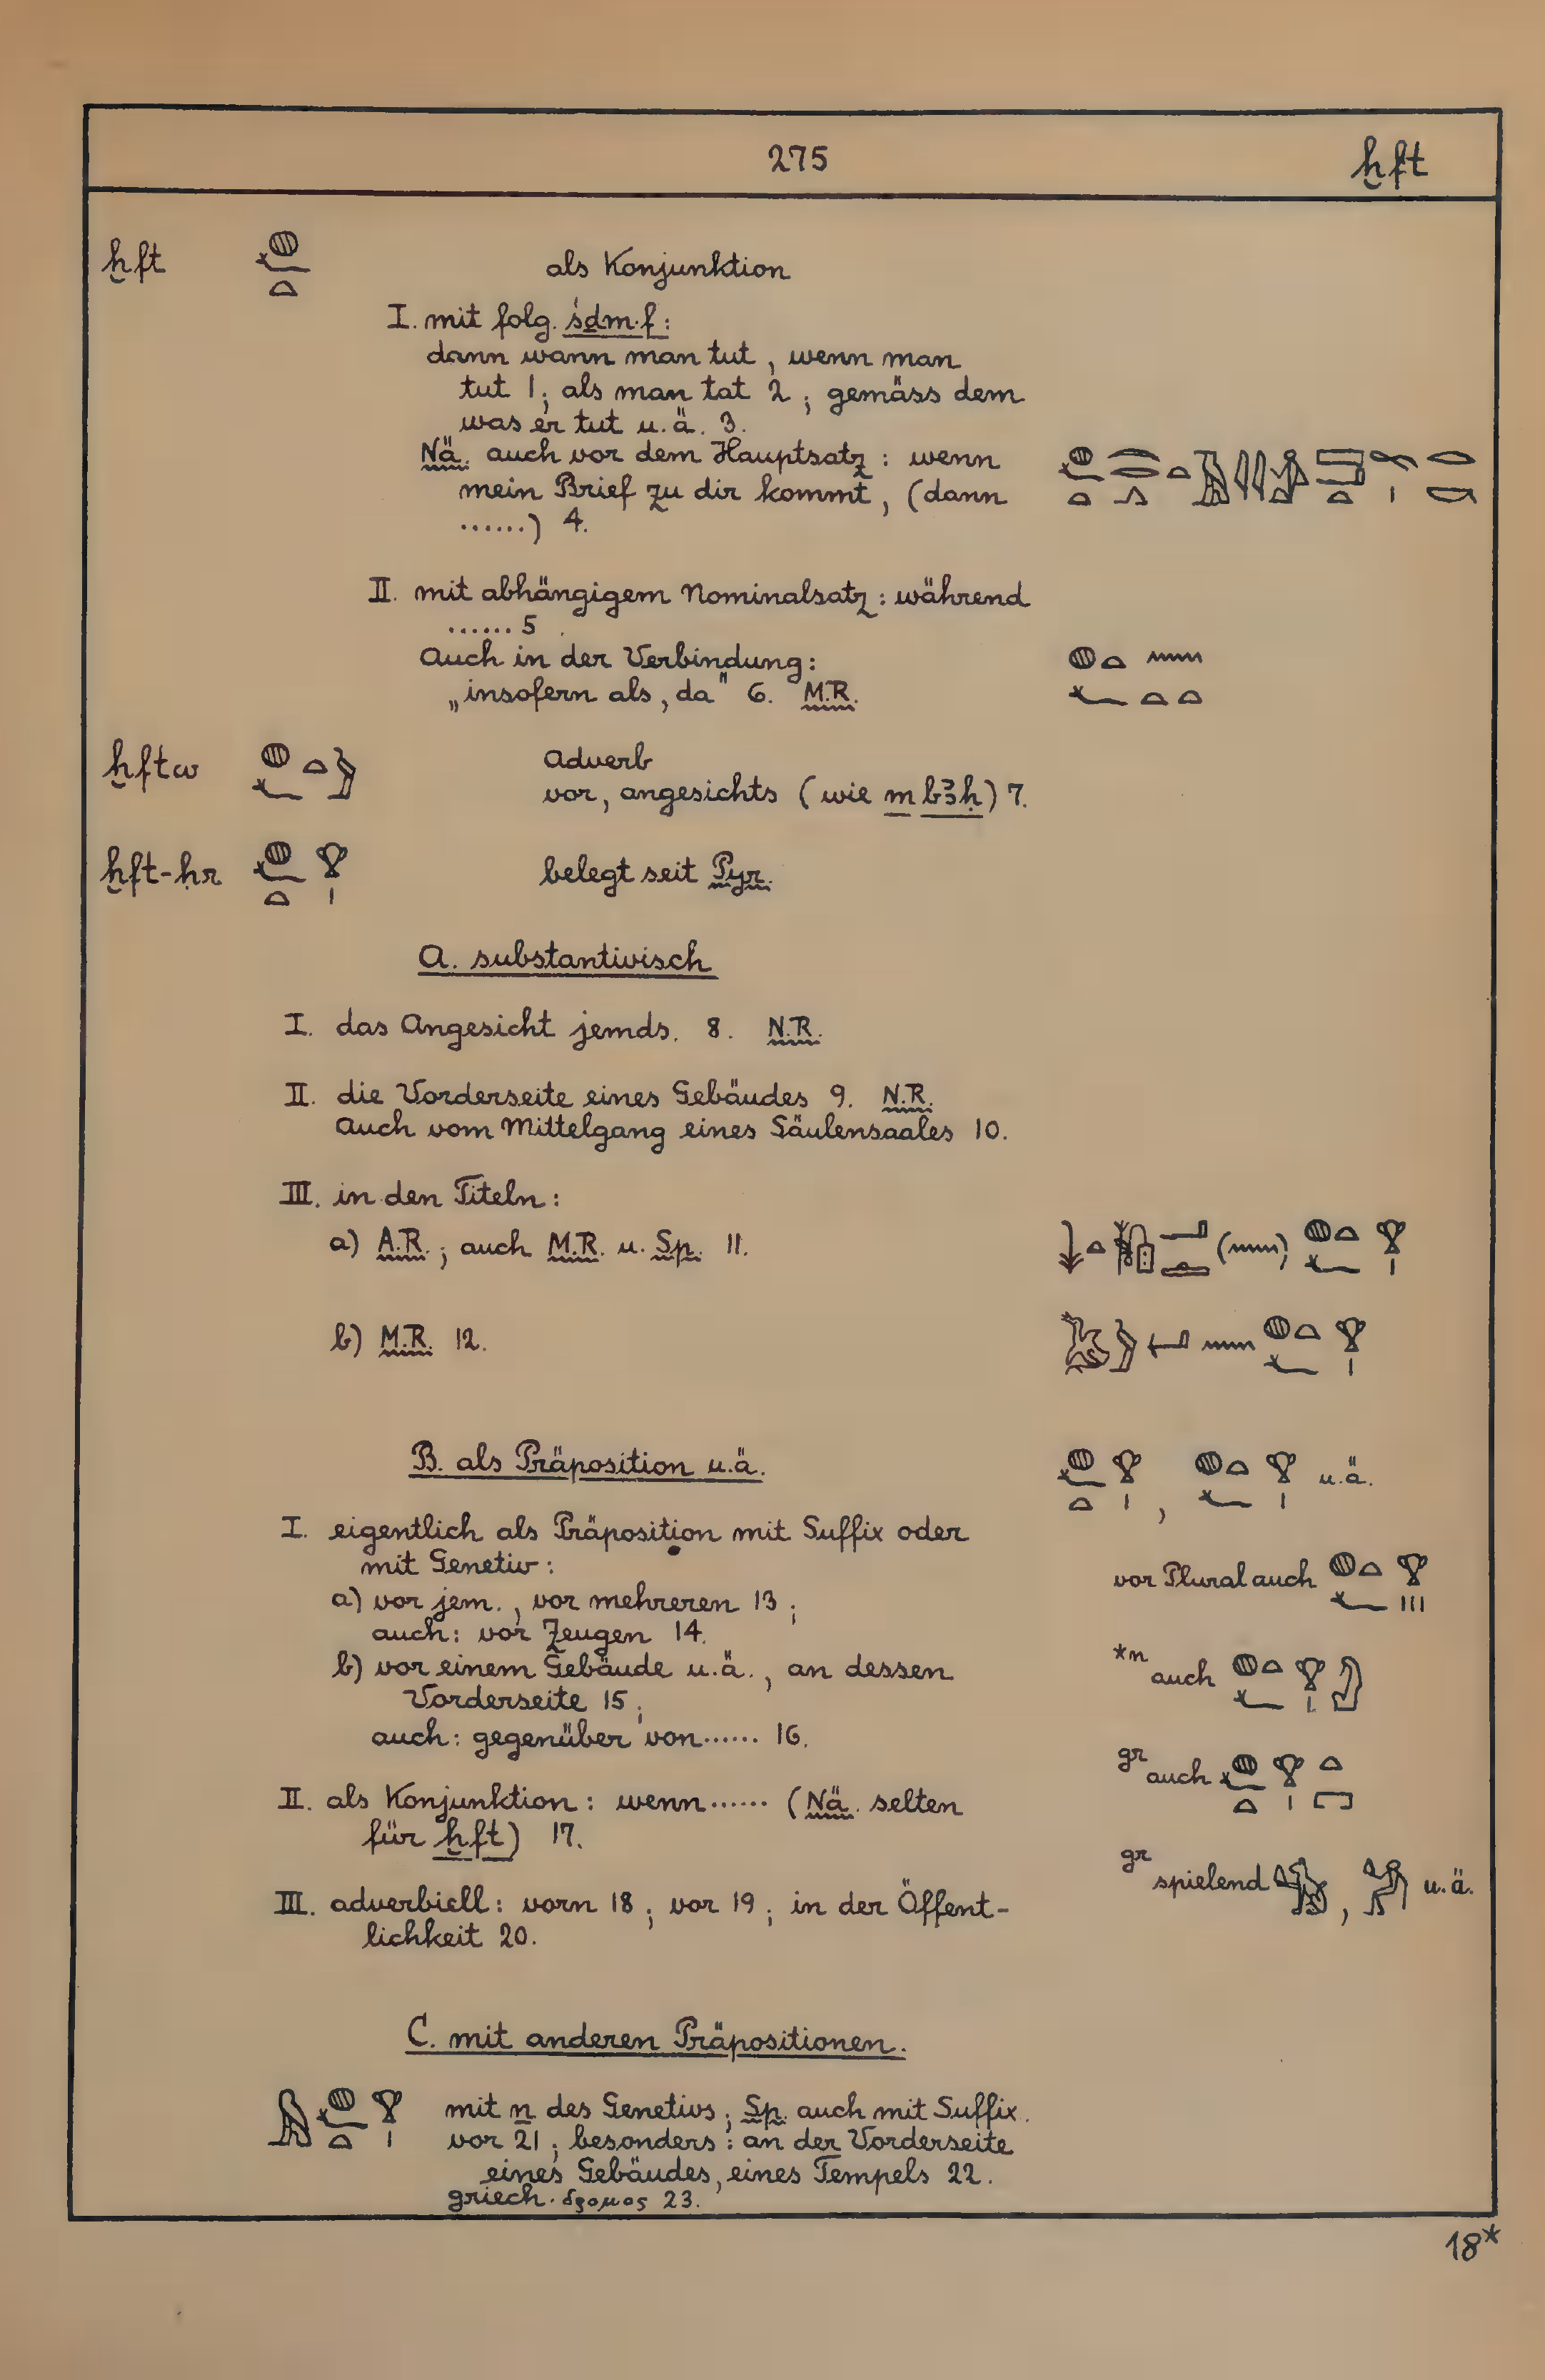 275 ḫft
ḫft als Konjunktion
I. mit folg. śḏm·f:
dann wann man tut, wenn man
tut 1; als man tat 2; gemäss dem
was er tut u.ä. 3.
Nä. auch vor dem Hauptsatz: wenn
mein Brief zu dir kommt, (dann
......) 4.
II. mit abhängigem Nominalsatz: während
...... 5.
Auch in der Verbindung:
„insofern als, da" 6. M.R.
ḫftw Adverb
vor, angesichts (wie m bꜣḥ) 7.
ḫft-ḥr belegt seit Pyr.
A. substantivisch
I. das Angesicht jemds. 8. N.R.
II. die Vorderseite eines Gebäudes 9. N.R.
Auch vom Mittelgang eines Säulensaales 10.
III. in den Titeln:
a) A.R.; auch M.R. u. Sp. 11.
b) M.R. 12.
B. als Präposition u.ä.
u.ä.
I. eigentlich als Präposition mit Suffix oder
mit Genetiv:
a) vor jem., vor mehreren 13;
auch: vor Zeugen 14.
b) vor einem Gebäude u.ä., an dessen
Vorderseite 15;
auch: gegenüber von...... 16.
II. als Konjunktion: wenn...... (Nä. selten
für ḫft) 17.
III. adverbiell: vorn 18; vor 19; in der Öffent-
lichkeit 20.
vor Plural auch
*n auch
gr auch
gr spielend , u.ä.
C. mit anderen Präpositionen.
mit n des Genetivs; Sp. auch mit Suffix.
vor 21; besonders: an der Vorderseite
eines Gebäudes, eines Tempels 22.
griech. δρομος 23.
18*